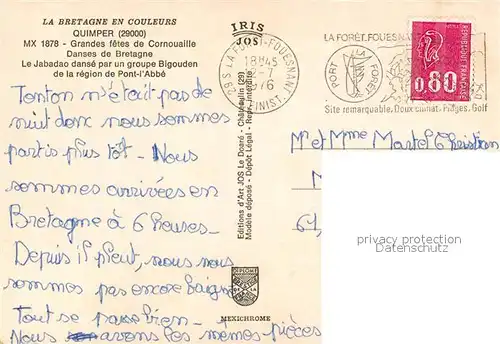 LA BRETAGNE EN COULEURS
QUIMPER (29000)
MX 1878 - Grandes fêtes de Cornouaille
Danses de Bretagne
Le Jabadao dansé par un groupe Bigouden
de la région de Pont-l'Abbé
Tonton n'était pas de
nuit donc nous sommes
partis plus tôt - Nous
sommes arrivées en
Bretagne à 6 heures -
Depuis il pleut, nous nous
sommes pas encore baigné
Tout se passe bien -
Nous avons les mêmes pièces
IRIS
JOS
Editions d'Art JOS Le Doaré - Châteaulin (29)
Modèle déposé - Dépôt Légal - Repr. interdite
MEXICHROME
29 S LA FORET-FOUESNANT
18H45
-7
1976
FINIST.
LA FORÊT-FOUESNANT
PORT LA FORÊT
Site remarquable. Doux climat. Plages. Golf
REPUBLIQUE FRANCAISE
0,80
Mr et Mme Martel Christian
61,
privacy protection
Datenschutz